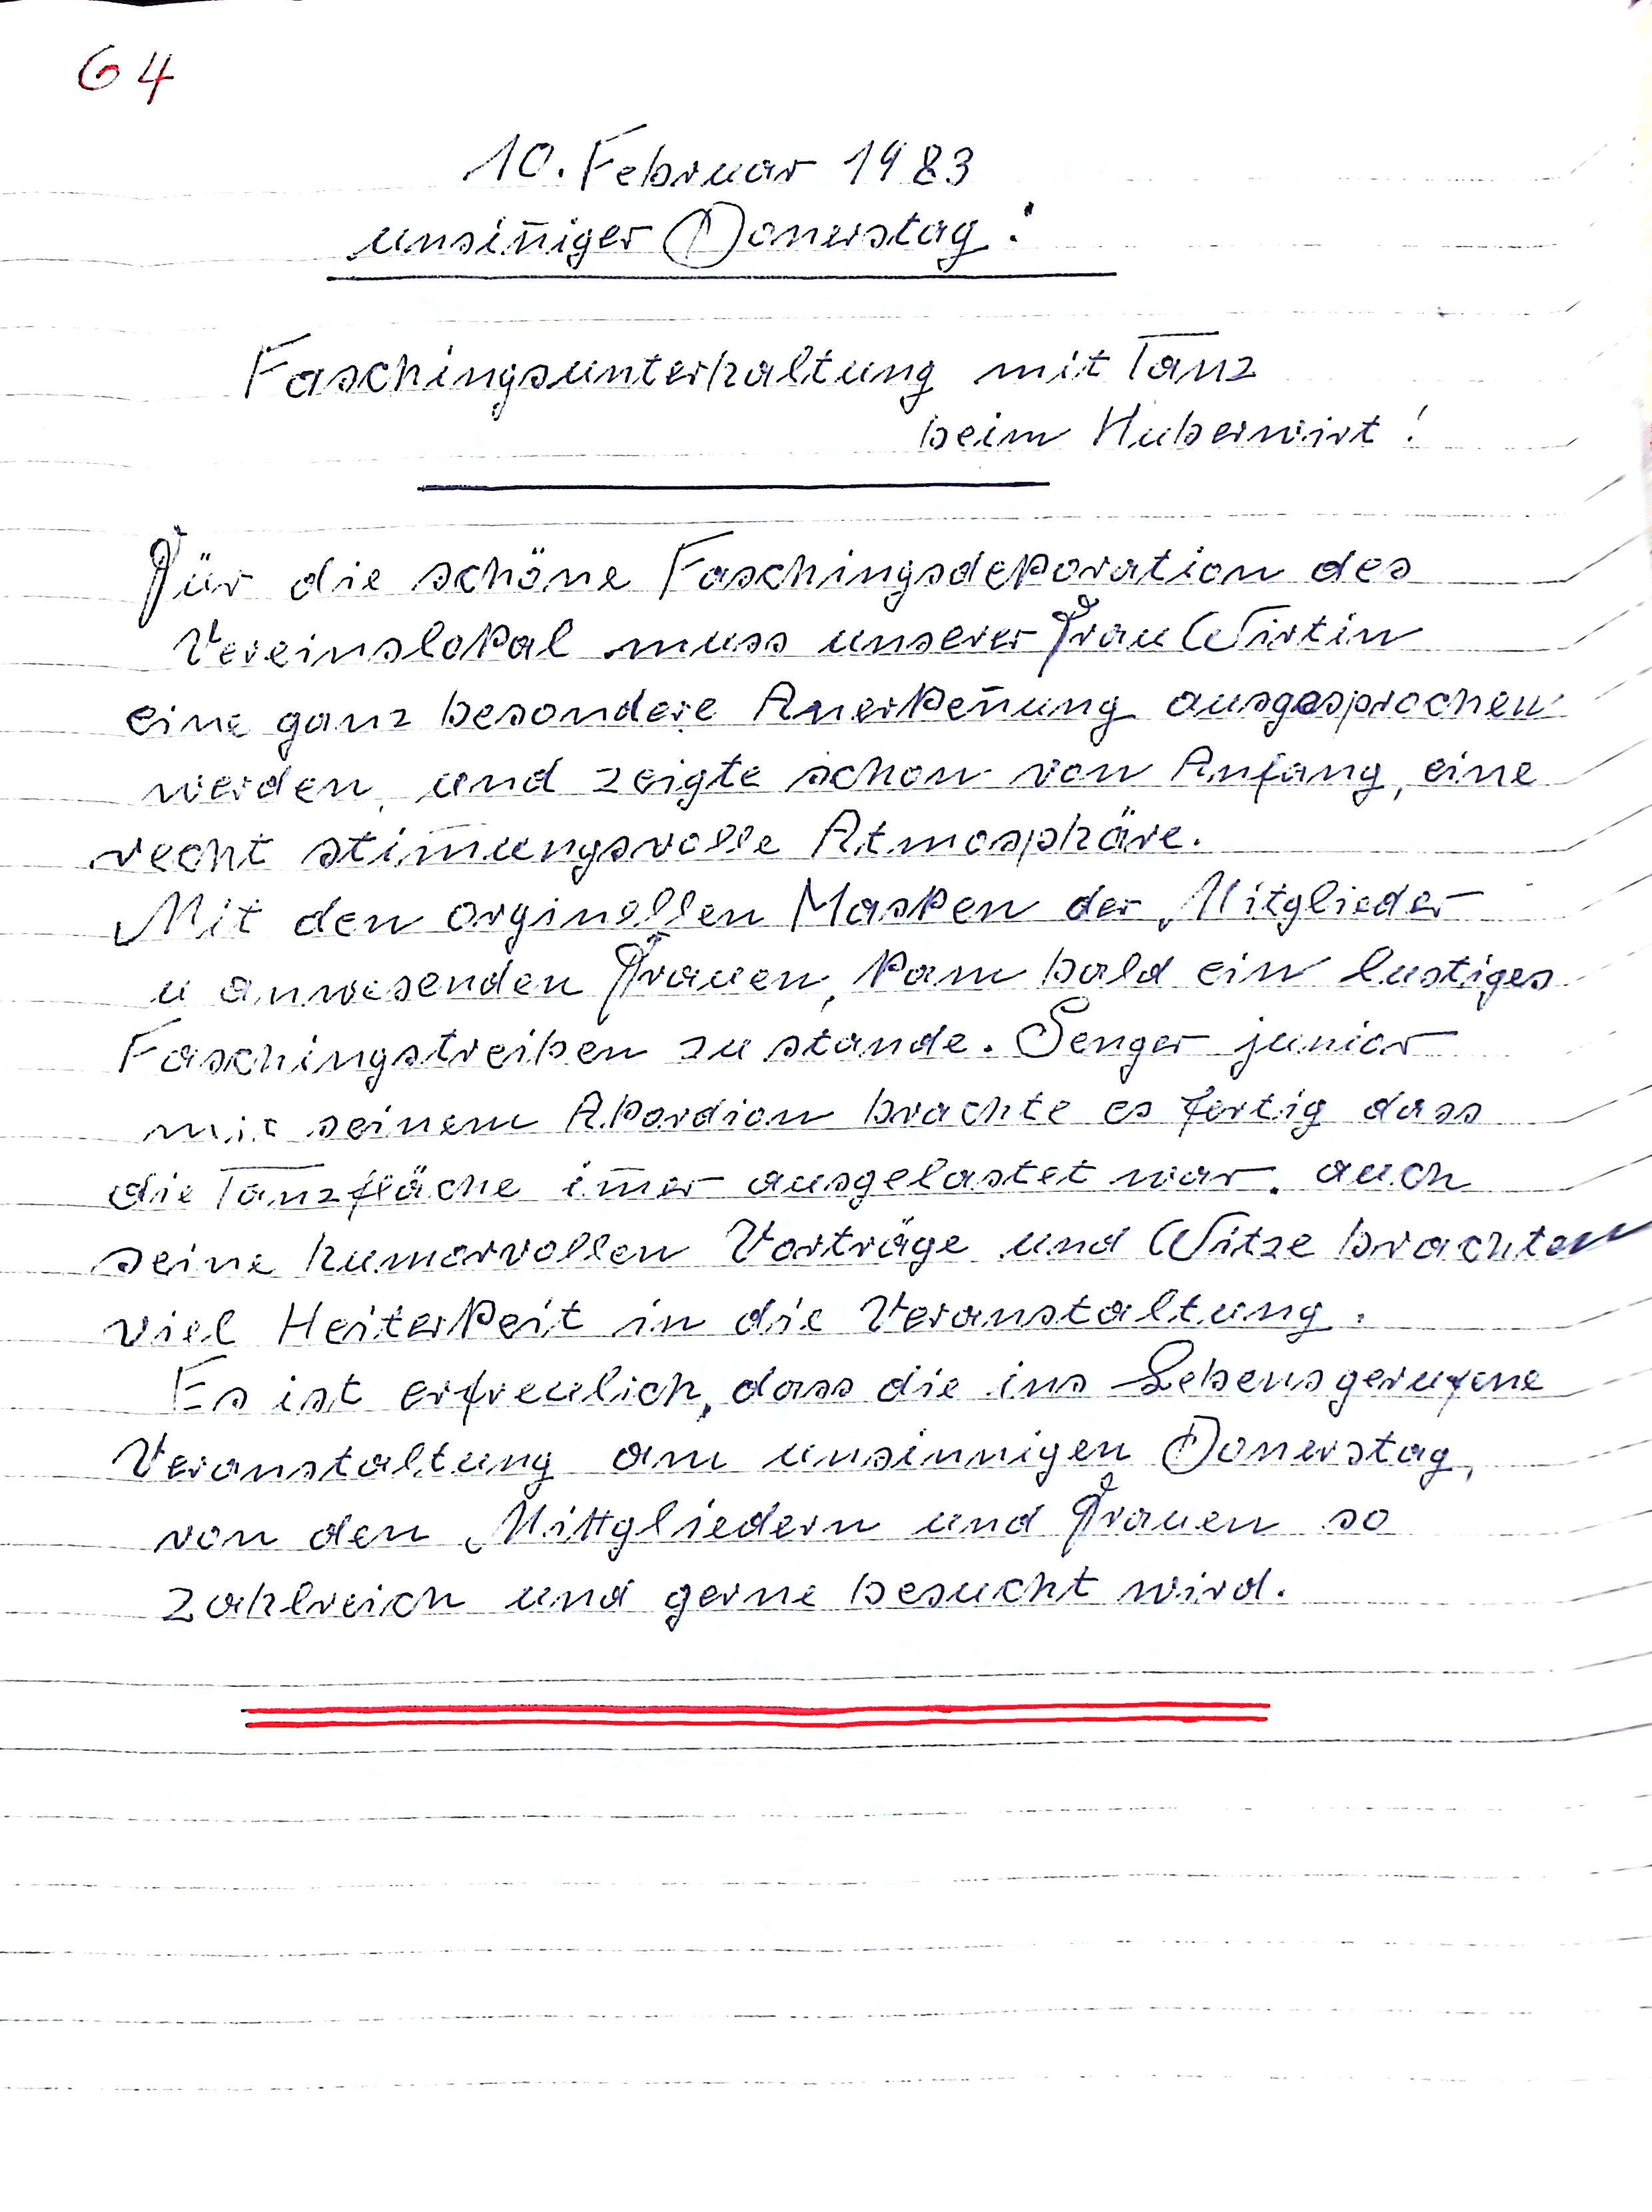 64
10. Februar 1983
unsin̄iger Donerstag!
Faschingsunterhaltung mit Tanz
beim Huberwirt!
Für die schöne Faschingsdekoration des
Vereinslokal muss unserer Frau Wirtin
eine ganz besondere Anerken̄ung ausgesprochen
werden, und zeigte schon von Anfang, eine
recht stim̄ungsvolle Atmosphäre.
Mit den orginellen Masken der Mitglieder
u anwesenden Frauen, kam bald ein lustiges
Faschingstreiben zu stande. Senger junior
mit seinem Akordion brachte es fertig dass
die Tanzfläche im̄er ausgelastet war. auch
seine humorvollen Vorträge und Witze brachten
viel Heiterkeit in die Veranstaltung.
Es ist erfreulich, dass die ins Lebensgerufene
Veranstaltung am unsinnigen Donerstag,
von den Mittgliedern und Frauen so
zahlreich und gerne besucht wird.